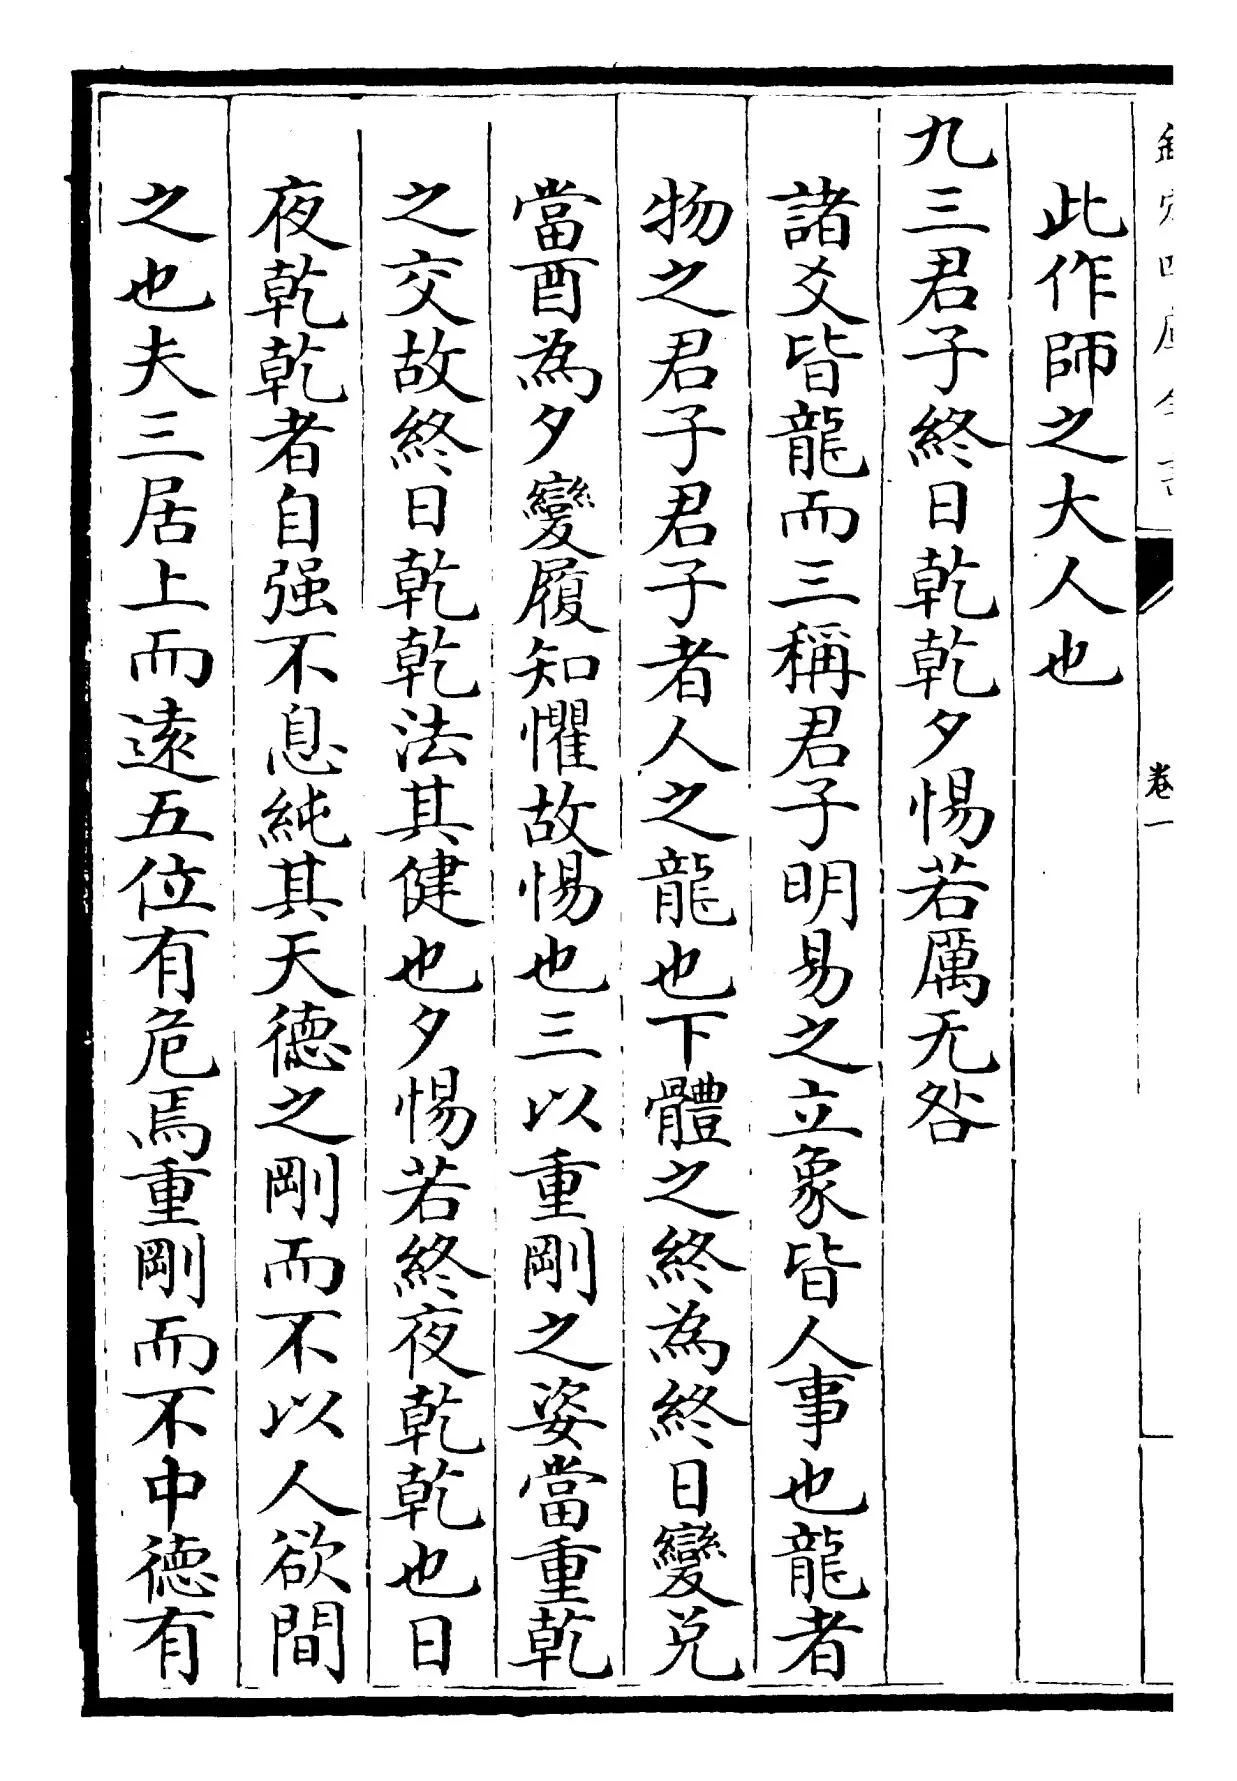 欽定四庫全書
卷一
此作師之大人也
九三君子終日乾乾夕惕若厲无咎
諸爻皆龍而三稱君子明易之立象皆人事也龍者
物之君子君子者人之龍也下體之終為終日變兌
當酉為夕變履知懼故惕也三以重剛之姿當重乾
之交故終日乾乾法其健也夕惕若終夜乾乾也日
夜乾乾者自强不息純其天德之剛而不以人欲間
之也夫三居上而遠五位有危焉重剛而不中德有